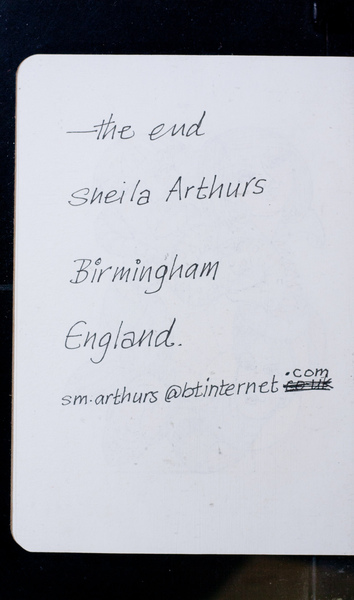 the end
Sheila Arthurs
Birmingham
England.
sm.arthurs@btinternet.com